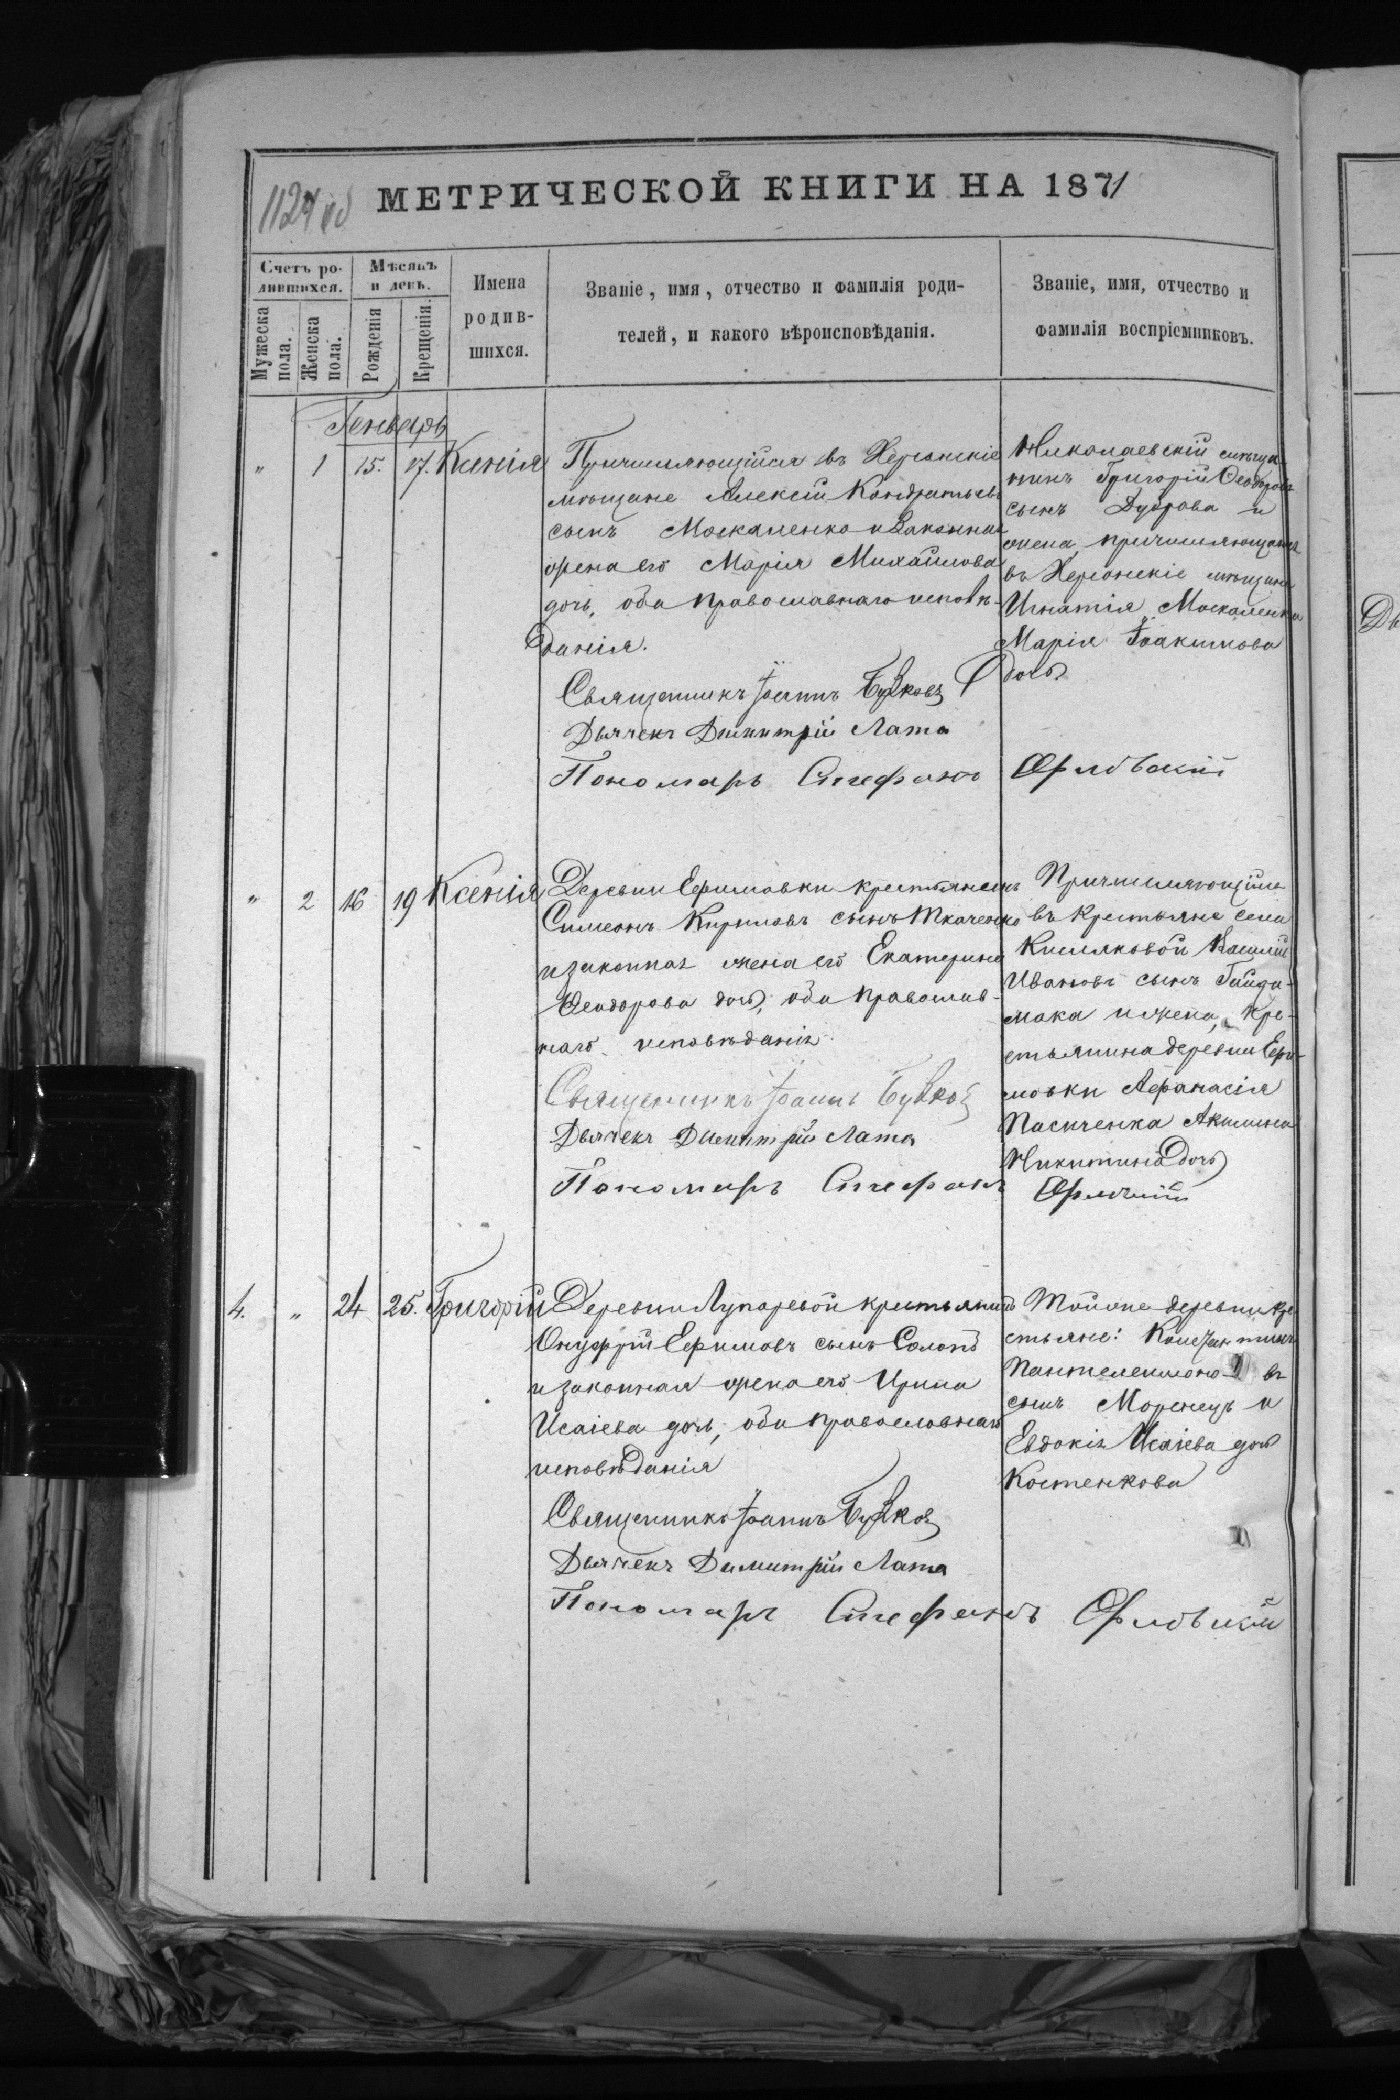 1124 об
МЕТРИЧЕСКОЙ КНИГИ НА 1871
Счетъ ро-
дившихся.
Мѣсяцъ
и день.
Имена
родив-
шихся.
Званіе, имя, отчество и фамилія роди-
телей, и какого вѣроисповѣданія.
Званіе, имя, отчество и
фамилія воспріемниковъ.
Мужеска
пола.
Женска
пола.
Рожденія
Крещенія.
Генварь
" 1 15. 17. Ксенія
Причисляющійся въ Херсонскіе
мѣщане Алексій Кондратьевъ
сынъ Москаленко и законная
жена его Марія Михайлова
дочь, оба православнаго исповѣ-
данія.
Священникъ Іоаннъ
Дьячекъ Димитрій Лата
Пономарь Стефанъ Орловскій
Николаевскій мѣща-
нинъ Григорій Ѳеодоровъ
сынъ Дуброва и
жена причисляющагося
въ Херсонскіе мѣщане
Игнатія Москаленка
Марія Іоакимова
дочь
" 2 16 19 Ксенія
Деревни Ефимовки крестьянинъ
Симеонъ Кириловъ сынъ Ткаченко
и законная жена его Екатерина
Ѳеодорова дочь, оба православ-
наго исповѣданія.
Священникъ Іоаннъ
Дьячекъ Димитрій Лата
Пономарь Стефанъ Орловскій
Причисляющійся
въ крестьяне села
Кисляковой Василій
Ивановъ сынъ Гайда-
мака и жена кре-
стьянина деревни Ефи-
мовки Афанасія
Пасиченка Акилина
Никитина дочь
4. " 24 25. Григорій
Деревни Лупаревой крестьянинъ
Онуфрій Ефимовъ сынъ
и законная жена его Ирина
Исаіева дочь, оба православнаго
исповѣданія
Священникъ Іоаннъ
Дьячекъ Димитрій Лата
Пономарь Стефанъ Орловскій
Той же деревни кре-
стьяне: Константинъ
Пантелеимоновъ
сынъ Моренецъ и
Евдокія Исаіева дочь
Костенкова